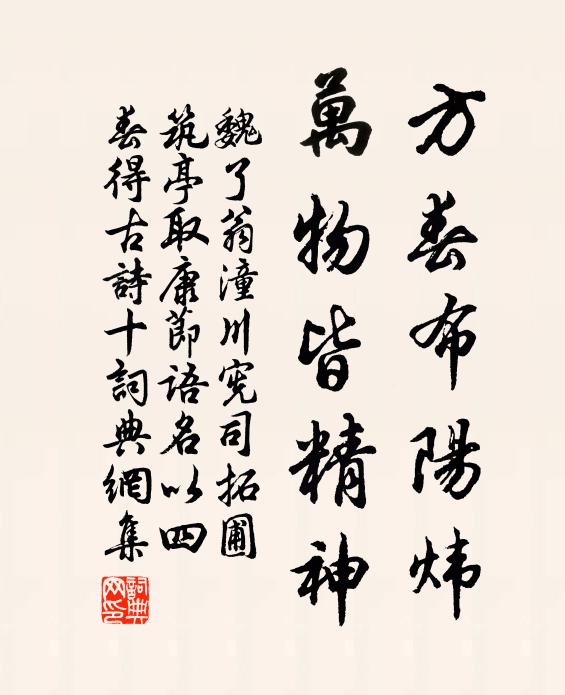 方春布陽煒
萬物皆精神
魏了翁潼川憲司拓圃
筑亭取康節語名以四
春得古詩十詞典網集
詞典网印